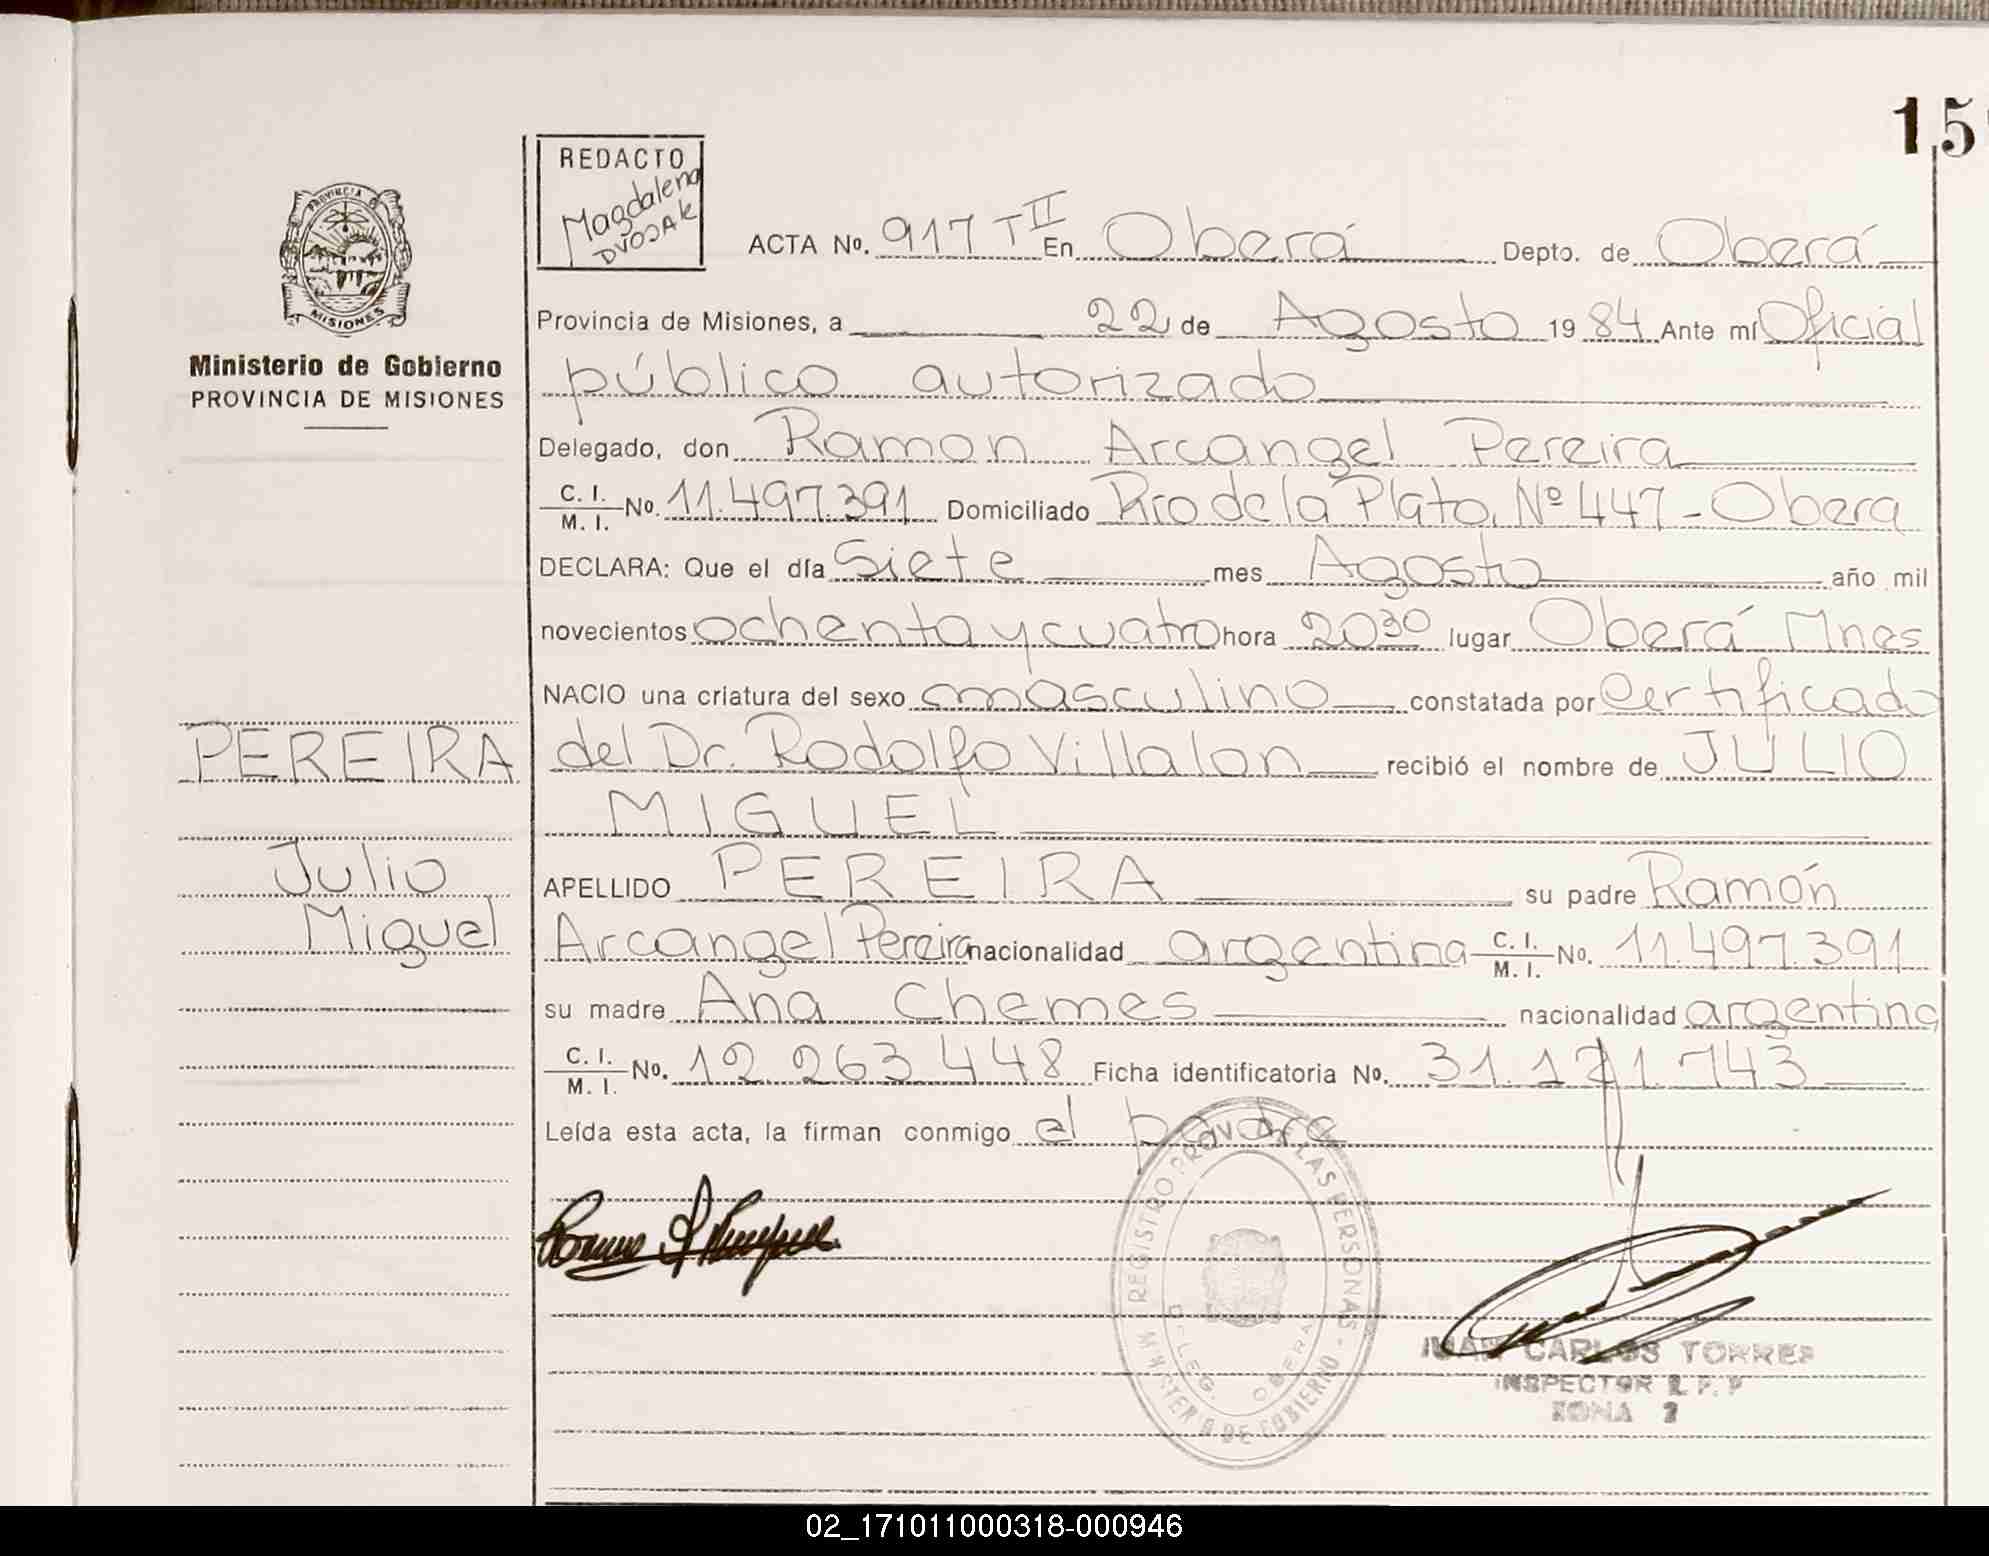 15
REDACTO
Magdalena
DVOJAK
PROVINCIA
MISIONES
Ministerio de Gobierno
PROVINCIA DE MISIONES
ACTA No. 917 T II En Oberá Depto. de Oberá
Provincia de Misiones, a 22 de Agosto 1984 Ante mí Oficial
público autorizado
Delegado, don Ramon Arcangel Pereira
C. I. / M. I. No. 11.497.391 Domiciliado Rio de la Plata, Nº 447 - Obera
DECLARA: Que el día Siete mes Agosto año mil
novecientos ochenta y cuatro hora 20 30 lugar Oberá Mnes
NACIO una criatura del sexo masculino constatada por Certificado
del Dr. Rodolfo Villalon recibió el nombre de JULIO
MIGUEL
APELLIDO PEREIRA su padre Ramón
Arcangel Pereira nacionalidad argentina C. I. / M. I. No. 11.497.391
su madre Ana Chemes nacionalidad argentina
C. I. / M. I. No. 12 263 448 Ficha identificatoria No. 31.171.743
Leída esta acta, la firman conmigo el padre
PEREIRA
Julio
Miguel
REGISTRO PROV. DE LAS PERSONAS - MINISTERIO DE GOBIERNO
DELEG. OBERA
JUAN CARLOS TORRES
INSPECTOR R. P. P
ZONA 2
02_171011000318-000946